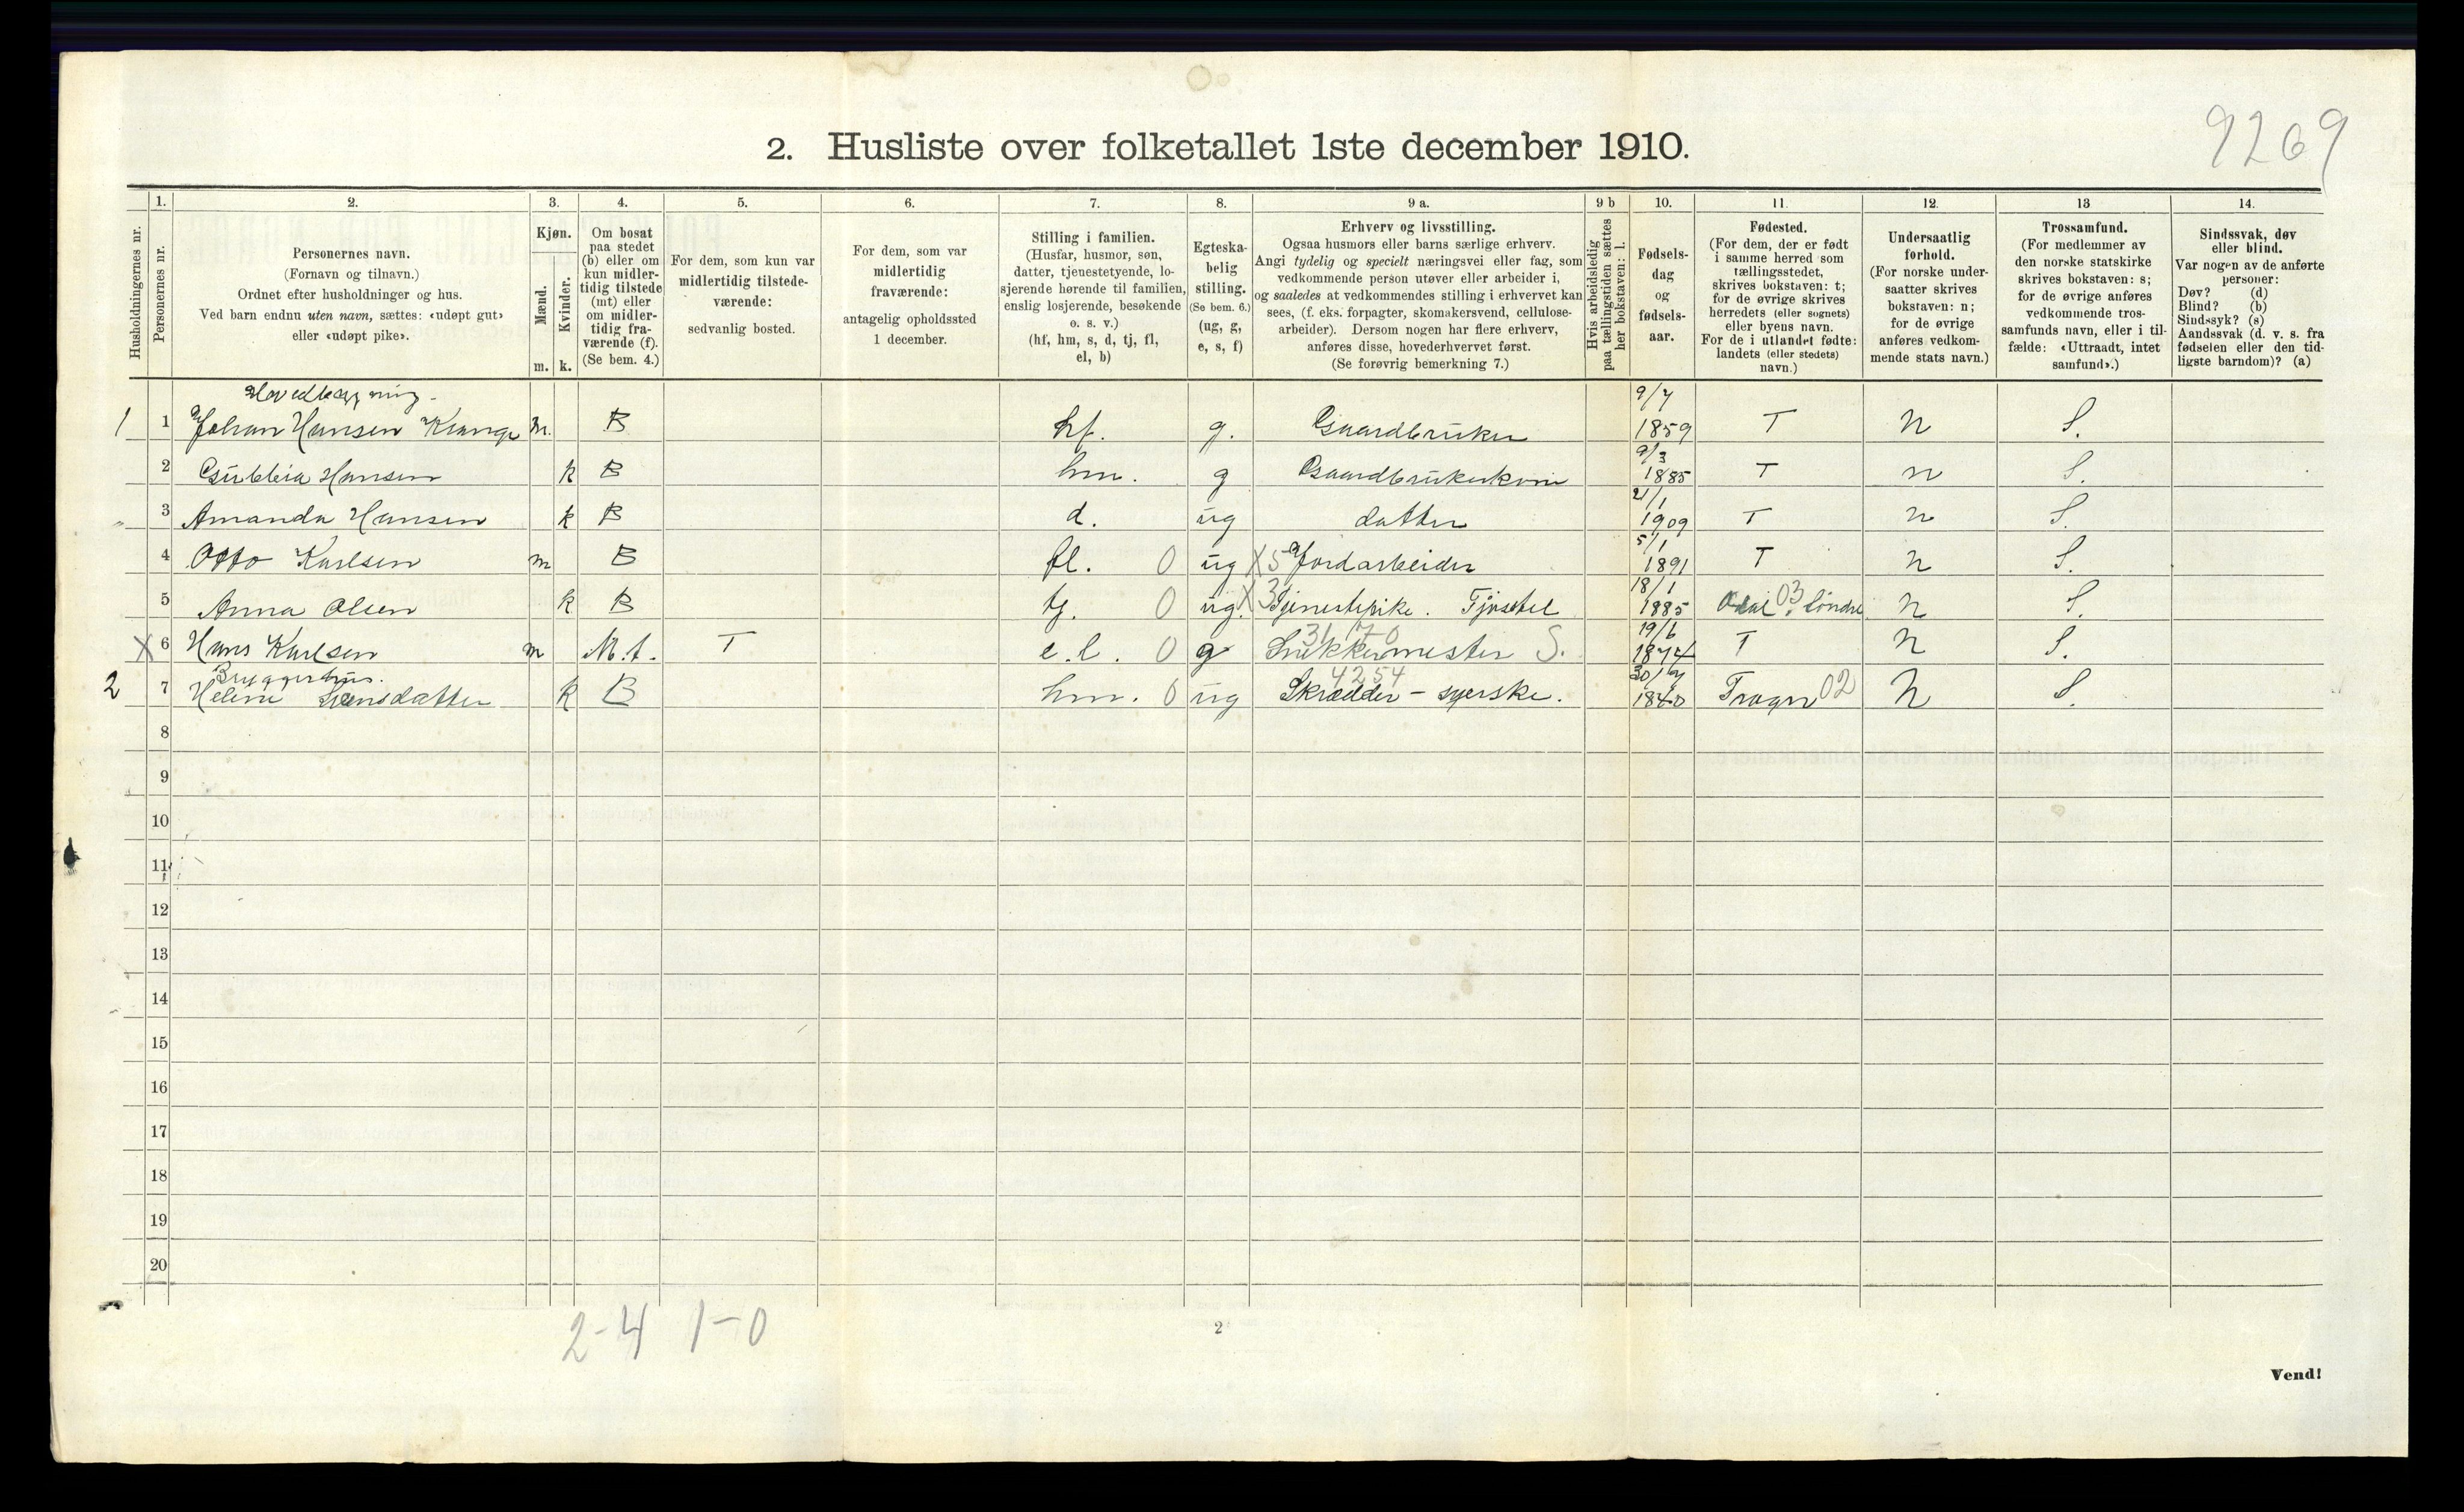 9269
2. Husliste over folketallet 1ste december 1910.
Husholdningernes nr.
1.
Personernes nr.
2.
Personernes navn.
(Fornavn og tilnavn.)
Ordnet efter husholdninger og hus.
Ved barn endnu uten navn, sættes: «udøpt gut»
eller «udøpt pike».
3.
Kjøn.
Mænd.
Kvinder.
m. k.
4.
Om bosat
paa stedet
(b) eller om
kun midler-
tidig tilstede
(mt) eller
om midler-
tidig fra-
værende (f).
(Se bem. 4.)
5.
For dem, som kun var
midlertidig tilstede-
værende:
sedvanlig bosted.
6.
For dem, som var
midlertidig
fraværende:
antagelig opholdssted
1 december.
7.
Stilling i familien.
(Husfar, husmor, søn,
datter, tjenestetyende, lo-
sjerende hørende til familien,
enslig losjerende, besøkende
o. s. v.)
(hf, hm, s, d, tj, fl,
el, b)
8.
Egteska-
belig
stilling.
(Se bem. 6.)
(ug, g,
e, s, f)
9 a.
Erhverv og livsstilling.
Ogsaa husmors eller barns særlige erhverv.
Angi tydelig og specielt næringsvei eller fag, som
vedkommende person utøver eller arbeider i,
og saaledes at vedkommendes stilling i erhvervet kan
sees, (f. eks. forpagter, skomakersvend, cellulose-
arbeider). Dersom nogen har flere erhverv,
anføres disse, hovederhvervet først.
(Se forøvrig bemerkning 7.)
9 b
Hvis arbeidsledig
paa tællingstiden sættes
her bokstaven: l.
10.
Fødsels-
dag
og
fødsels-
aar.
11.
Fødested.
(For dem, der er født
i samme herred som
tællingsstedet,
skrives bokstaven: t;
for de øvrige skrives
herredets (eller sognets)
eller byens navn.
For de i utlandet fødte:
landets (eller stedets)
navn.)
12.
Undersaatlig
forhold.
(For norske under-
saatter skrives
bokstaven: n;
for de øvrige
anføres vedkom-
mende stats navn.)
13
Trossamfund.
(For medlemmer av
den norske statskirke
skrives bokstaven: s;
for de øvrige anføres
vedkommende tros-
samfunds navn, eller i til-
fælde: «Uttraadt, intet
samfund».)
14.
Sindssvak, døv
eller blind.
Var nogen av de anførte
personer:
Døv? (d)
Blind? (b)
Sindssyk? (s)
Aandssvak (d. v. s. fra
fødselen eller den tid-
ligste barndom)? (a)
Hovedbygning-
1 1 Johan Hansen m. B hf. g. Gaardbruker 9/7 1859 T N S.
2 Gubbia Hansen k B hm. g Gaardbrukerkone 9/3 1885 T n S.
3 Amanda Hansen k B d. ug datter 21/1 1909 T n S.
4 Otto Karlsen m B fl. 0 ug X 5 Jordarbeider 5/1 1891 T n S.
5 Anna Olsen k B tj. 0 ug. X 3 Tjenestepike. 18/1 1885 Odal 03 Söndre n S.
X 6 Hans Karlsen m M.t. T e.l. 0 g 31 70 Snekkermester S. 19/6 1874 T N S.
Bryggerhus.
2 7 Helene k B hm. 0 ug 4254 Skrædder - syerske. 30/7 1840 Trogn 02 N S.
8
9
10
11
12
13
14
15
16
17
18
19
20
2-4 1-0
2
Vend!